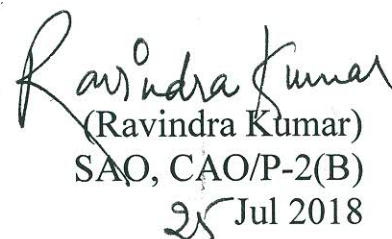 Ravindra Kumar
(Ravindra Kumar)
SAO, CAO/P-2(B)
25 Jul 2018